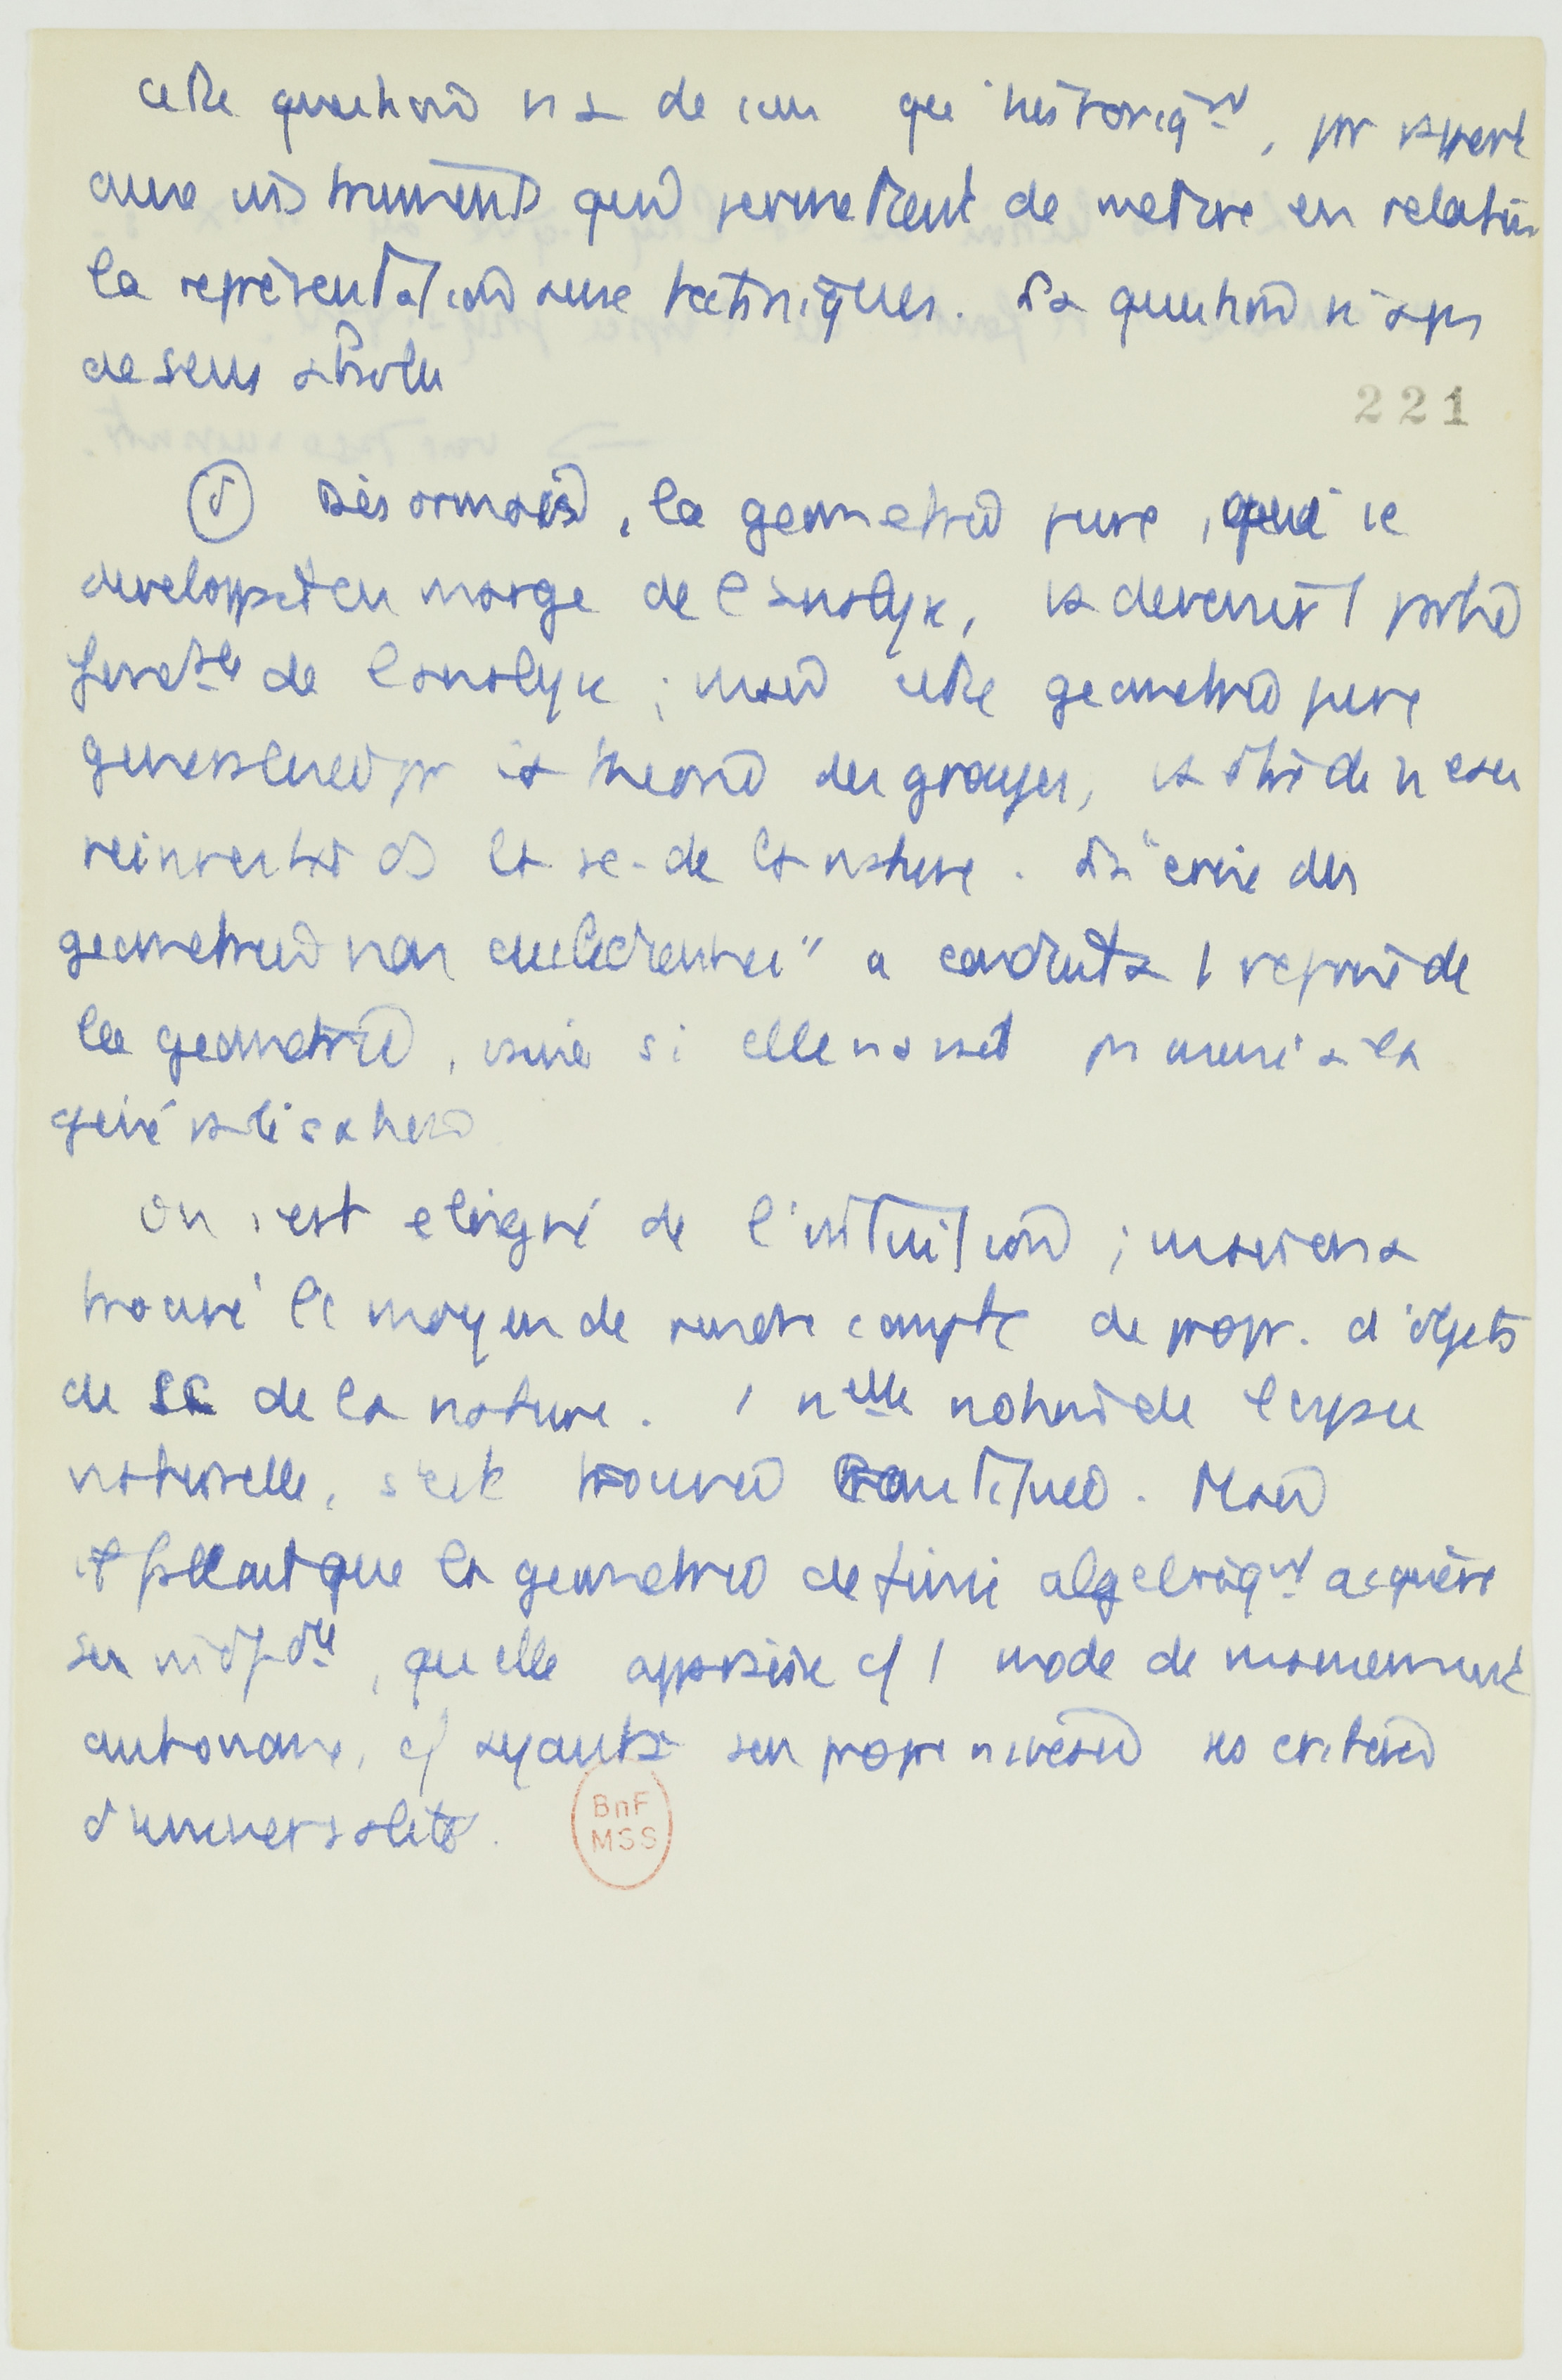 cette question n'a de sens que historiqt, pr rapport
aux instruments qui permettent de mettre en relation
la représentation aux techniques. La question n'a pas
de sens absolu
221
Désormais, la geometrie pure, qui se
developpait en marge de l'analyse, va devenir 1 partie
de l'analyse ; mais cette geometrie pure
par la theorie des groupes, va etre
reinvestie ds la sc. de la nature. La "crise des
geometries non euclidiennes" a conduit a 1 de
la geometrie, si elle n'avait pas a la
généralisation
On s'est eloigné de l'intuition ; mais on a
trouvé le moyen de rendre compte de propr. d'objets
de sc de la nature. 1 nelle notion de l'espace
naturelle, s'est trouvée constituée. Mais
il fallait que la geometrie definie algebriqt acquière
son indépdce, qu'elle apparaisse c/ 1 mode de
autonome, c/ ayant a son propre niveau ses critères
d'universalité.
BnF
MSS